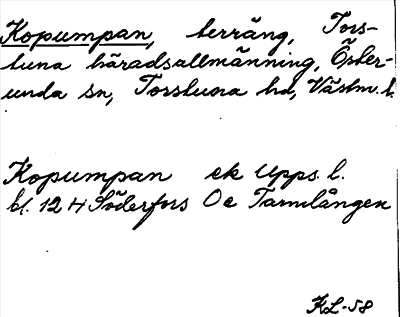 Kopumpan, terräng, Tors-
tuna häradsallmänning, Öster-
unda sn, Torstuna hd, Västm. l.
Kopumpan ek Upps. l.
bl. 12 H Söderfors 0 e Tarmlången
KL-58